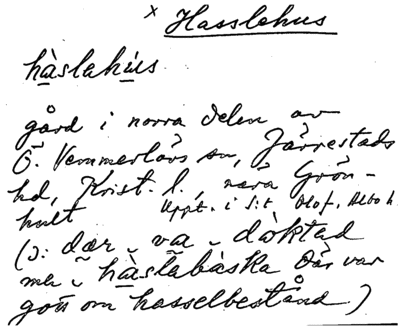 x Hasslehus
hàslahús
gård i norra delen av
Ö. Vemmerlövs sn, Järrestads
hd, Krist. l., nära Grön-
hult Uppt. i S:t Olof, Albo h.
(ɔ: dær va döktad
me hàslabàska där var
gott om hasselbestånd)